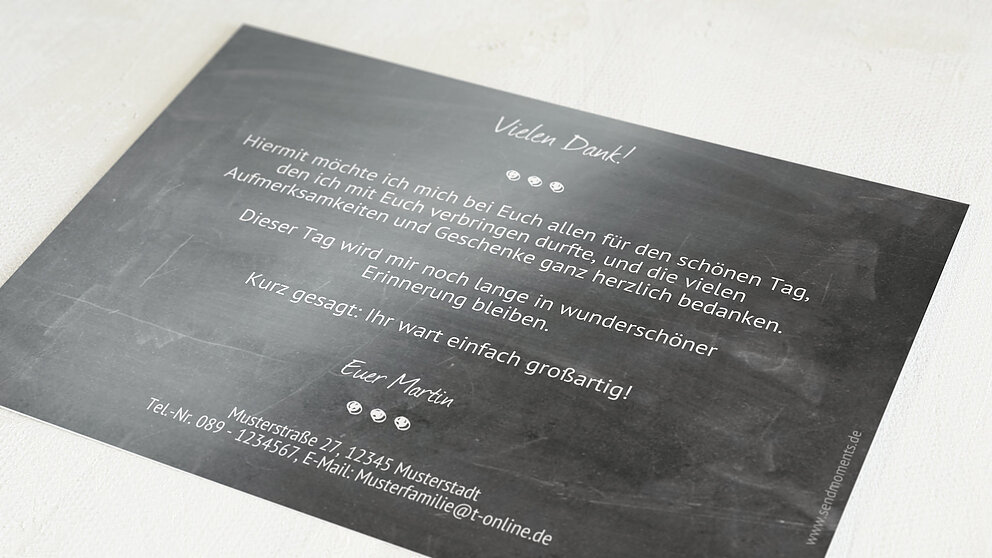 Vielen Dank!
Hiermit möchte ich mich bei Euch allen für den schönen Tag,
den ich mit Euch verbringen durfte, und die vielen
Aufmerksamkeiten und Geschenke ganz herzlich bedanken.
Dieser Tag wird mir noch lange in wunderschöner
Erinnerung bleiben.
Kurz gesagt: Ihr wart einfach großartig!
Euer Martin
Musterstraße 27, 12345 Musterstadt
Tel.-Nr. 089 - 1234567, E-Mail: Musterfamilie@t-online.de
www.sendmoments.de